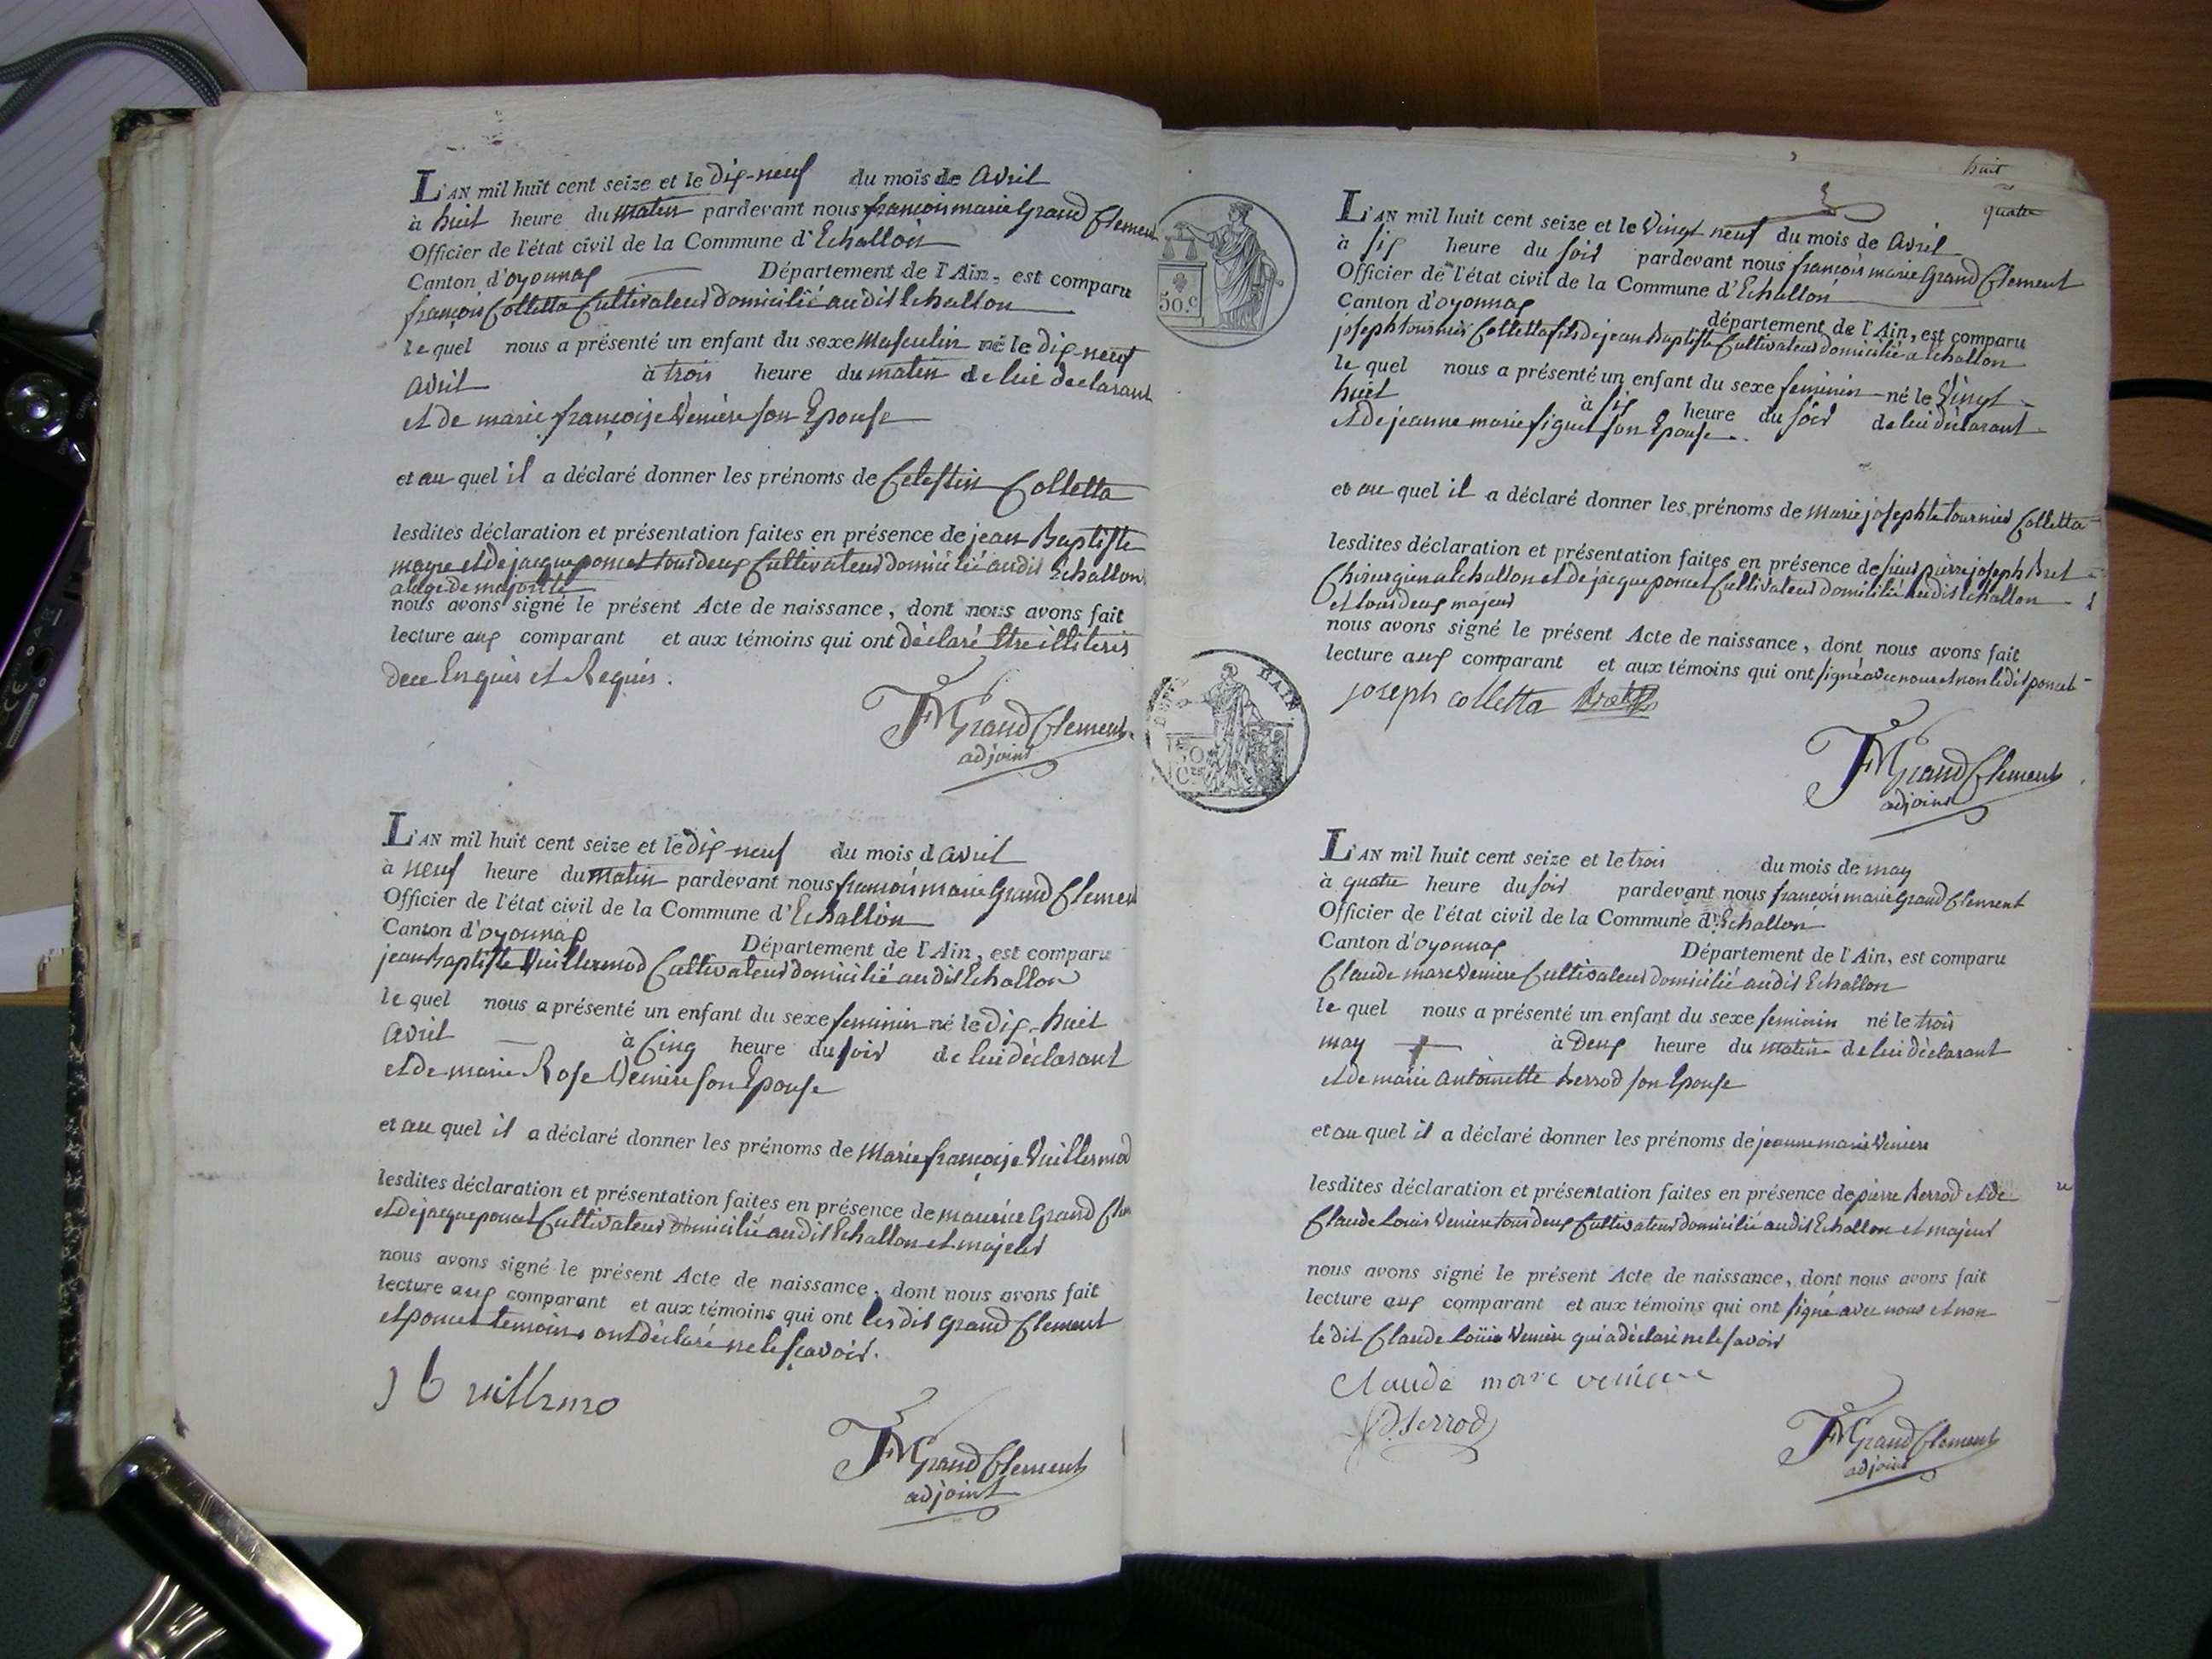 L'AN mil huit cent seize et le dix-neuf du mois de avril
à huit heure du matin pardevant nous françois marie Grand Clement
Officier de l'état civil de la Commune d'Echallon
Canton d'oyonnax Département de l'Ain, est comparu
françois Colletta Cultivateur domicilié audit Echallon
le quel nous a présenté un enfant du sexe Masculin né le dix-neuf
avril à trois heure du matin de lui declarant
et de marie françoise Veniere son Epouse
et au quel il a déclaré donner les prénoms de Celestin Colletta
lesdites déclaration et présentation faites en présence de jean Baptiste
mayre et de jacque poncet tous deux Cultivateur domicilié audit Echallon
a lage de majorité
nous avons signé le présent Acte de naissance, dont nous avons fait
lecture aux comparant et aux témoins qui ont déclaré Etre illiteris
dece Enquis et Requis.
FMGrandClement
adjoint
L'AN mil huit cent seize et le dix-neuf du mois d avril
à neuf heure du matin pardevant nous françois marie Grand Clemen
Officier de l'état civil de la Commune d'Echallon
Canton d'oyonnax Département de l'Ain, est comparu
jean Baptiste Vuillermod Cultivateur domicilié audit Echallon
le quel nous a présenté un enfant du sexe feminin né le dix-huit
avril à Cinq heure du soir de lui déclarant
et de marie Rose Veniere son Epouse
et au quel il a déclaré donner les prénoms de Marie françoise Vuillermod
lesdites déclaration et présentation faites en présence de maurice Grand Cle
et de jacque poncet Cultivateur domicilié audit Echallon et majeur
nous avons signé le présent Acte de naissance, dont nous avons fait
lecture aux comparant et aux témoins qui ont lesdit Grand Clement
et poncet temoins ont déclaré ne le sçavoir.
J b vuillrmo
FMGrandClement
adjoint
50.c
BAIN
huit
quatre
L'AN mil huit cent seize et le Vingt neuf du mois de avril
à six heure du soir pardevant nous françois marie Grand Clement
Officier de l'état civil de la Commune d'Echallon
Canton d'oyonnax département de l'Ain, est comparu
joseph tournier Colletta fils de jean Baptiste Cultivateur domicilié a Echallon
le quel nous a présenté un enfant du sexe feminin né le Vingt
huit à six heure du soir de lui déclarant
et de jeanne marie figuet son Epouse
et au quel il a déclaré donner les prénoms de marie josephte tournier Colletta
lesdites déclaration et présentation faites en présence de sieur pierre joseph Bret
Chirurgien a Echallon et de jacque poncet Cultivateur domicilié audit Echallon
et tous deux majeur
nous avons signé le présent Acte de naissance, dont nous avons fait
lecture aux comparant et aux témoins qui ont signé avec nous et non le dit poncet
joseph colletta
FMGrandClement
adjoint
L'AN mil huit cent seize et le trois du mois de may
à quatre heure du soir pardevant nous françois marie Grand Clement
Officier de l'état civil de la Commune d'Echallon
Canton d'oyonnax Département de l'Ain, est comparu
Claude marc Veniere Cultivateur domicilié audit Echallon
le quel nous a présenté un enfant du sexe feminin né le trois
may à Deux heure du matin de lui déclarant
et de marie Antoinette Berrod son Epouse
et au quel il a déclaré donner les prénoms de jeanne marie Veniere
lesdites déclaration et présentation faites en présence de pierre Berrod et de
Claude Louis Veniere tous deux Cultivateur domicilié audit Echallon et majeur
nous avons signé le présent Acte de naissance, dont nous avons fait
lecture aux comparant et aux témoins qui ont signé avec nous et non
le dit Claude Louis Veniere qui a déclaré ne le savoir
Claude marc veniere
P. berrod
FMGrandClement
adjoint